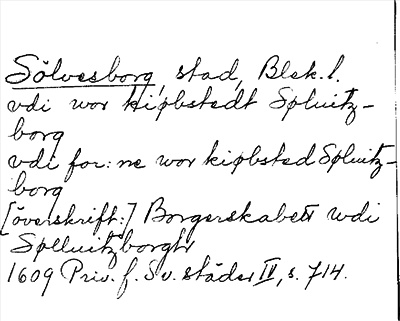 Sölvesborg, stad, Blek. l.
vdi wor kiøbstedt Søluitz-
borg
vdi for:ne wor kiøbsted Søluitz-
borg
[överskrift:] Borgerskabett wdi
Sølluitzborgh
1609 Priv. f. Sv. städer IV, s. 714.